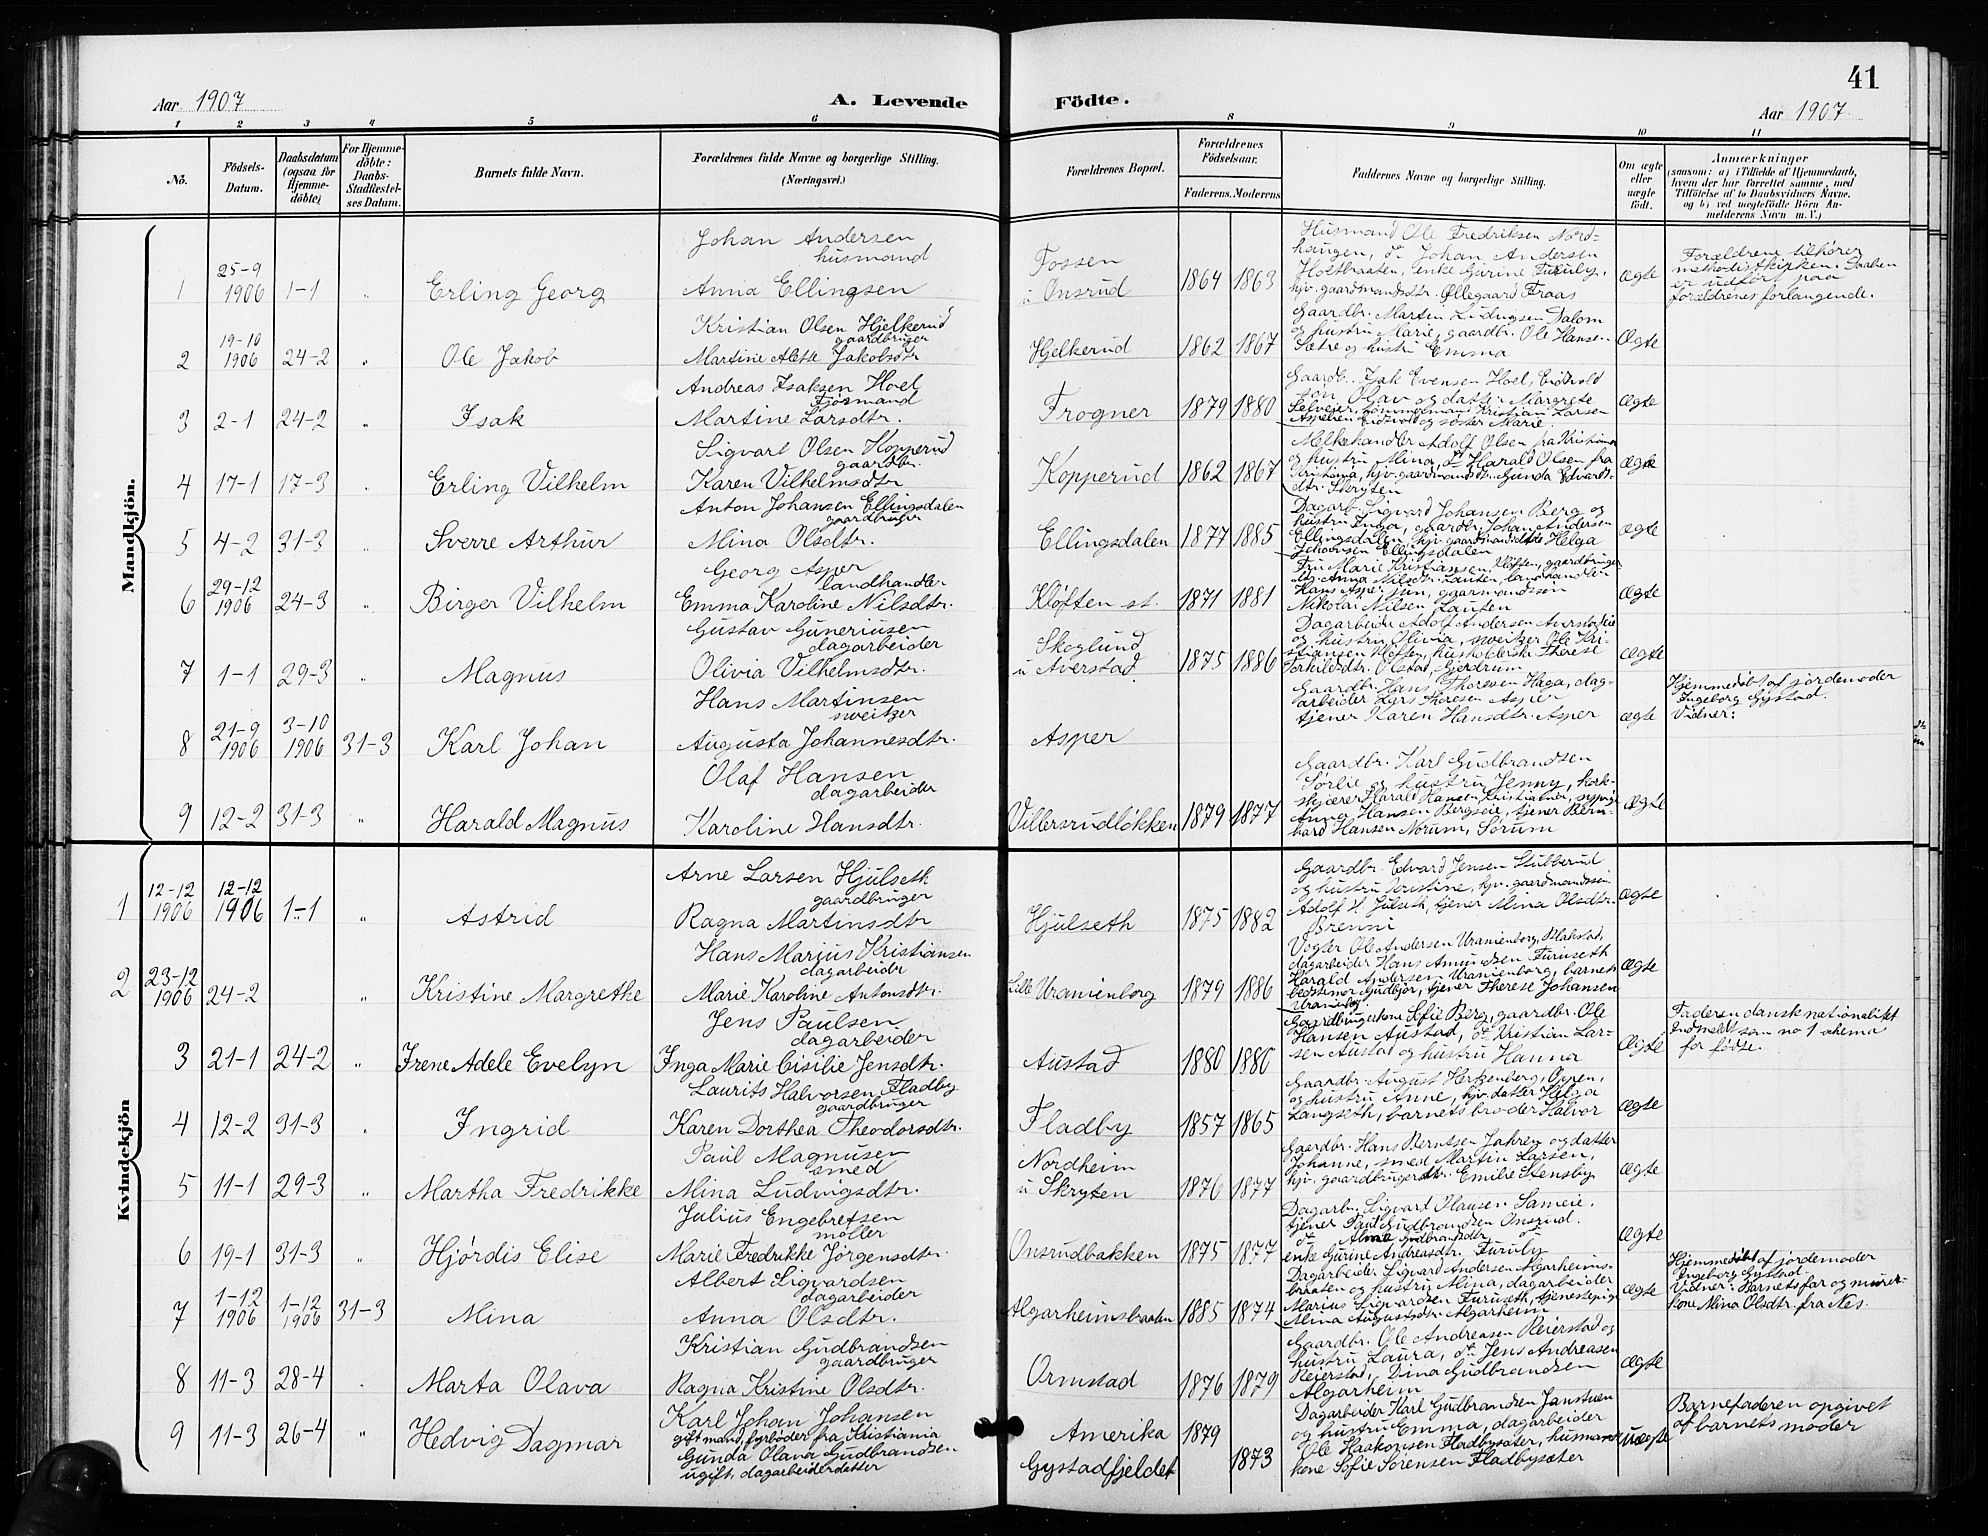 41
Aar 1907
A. Levende Födte.
Aar 1907
1 2 3 4 5 6 8 9 10 11
Nö.
Födsels-Datum.
Daabsdatum (ogsaa for Hjemmedöbte)
For Hjemmedöbte: Daabs-Stadfæstelses Datum.
Barnets fulde Navn.
Forældrenes fulde Navne og borgerlige Stilling. (Næringsvei.)
Forældrenes Bopæl.
Forældrenes Födselsaar.
Faderens. Moderens
Faddernes Navne og borgerlige Stilling.
Om ægte eller uægte födt.
Anmærkninger
(saasom: a) i Tilfælde af Hjemmedaab, hvem der har forrettet samme, med Tilföielse af to Daabsvidners Navne, og b) ved uægtefödte Börn Anmelderens Navn m. V.)
Mandkjön.
1 25-9 1906 1-1 " Erling Georg
Johan Andersen husmand
Anna Ellingsen
Fossen u Onsrud 1864 1863
Husmand Ole Fredriksen Nordhaugen, do Johan Andersen
Holtbraaten, enke Gurine Furuly,
hjv. gaardmandsdtr. Øllegaard Fraas
ægte
Forældrene tilhører methodistkirken. Daaben er udført paa forældrenes forlangende.
2 19-10 1906 24-2 " Ole Jakob
Kristian Olsen Hjelkerud gaardbruger
Martine Alette Jakobsdtr
Hjelkerud 1862 1867
Gaardbr. Martin Ludvigsen Dalom
og hustru Marie, gaardbr. Ole Hansen
Sætre og hustru Emma
Ægte
3 2-1 24-2 " Isak
Andreas Isaksen Hoel Fjøsmand
Martine Larsdtr.
Frogner 1879 1880
Gaardb. Isak Evensen Hoel, Eidsvold
søn Olav og datter Margrete
Selveier, Kristian Larsen
Eidsvold og søster Marie.
ægte
4 17-1 17-3 " Erling Vilhelm
Sigvart Olsen Kopperud gaardbr.
Karen Vilhelmsdtr
Kopperud 1862 1867
Melkehandler Adolf Olsen fra Kristiania
og hustru Mina, do Harald Olsen fra
Kristiania, hjv. gaardmandsdtr. Gunda Edvardsdtr. Skryten
ægte
5 4-2 31-3 " Sverre Arthur
Anton Johansen Ellingsdalen gaardbruger
Mina Olsdtr.
Ellingsdalen 1877 1885
Dagarb. Sigvard Johansen Berg og
hustru Inga, gaardbr. Johan Andersen
Ellingsdalen, hjv. gaardmandsdtr Helga
Johansen Ellingsdalen
ægte
6 29-12 1906 24-3 " Birger Vilhelm
Georg Asper landhandler
Emma Karoline Nilsdtr.
Kløften st. 1871 1881
Fru Marie Kristiansen, Kløften, gaardbruger
Anna Nilsdtr. Lauten, landhandler
Hans Asper jun, gaarmandssøn
Nikolai Nilsen Lauten
Ægte
7 1-1 29-3 " Magnus
Gustav Guneriusen dagarbeider
Olivia Vilhelmsdtr.
Skoglund u Averstad 1875 1886
Dagarbeider Adolf Andersen Averstadeie
og hustru Olivia, sveitzer Ole Kristiansen Kløften, husholderske Therese
Torkildsdtr. Olstad, Gjerdrum
Ægte
8 21-9 1906 3-10 1906 31-3 Karl Johan
Hans Martinsen sveitzer
Augusta Johannesdtr.
Asper
Gaardbr. Hans Thoresen Haga, dagarbeider Lars Theresen Asper
tjener Karen Hansdtr. Asper
ægte
Hjemmedøbt af jordemoder
Ingeborg Gystad.
Vidner:
9 12-2 31-3 " Harald Magnus
Olaf Hansen dagarbeider
Karoline Hansdtr.
Villersrudløkken 1879 1877
Gaardbr. Karl Gudbrandsen
Sørlie og hustru Jenny, korkskjærer Harald Hansen Kristiania, sypige
Anna Hansen Bergseie, tjener Bernhard Hansen Norum, Sørum
Ægte
Kvindekjön
1 12-12 1906 12-12 1906 1-1 " Astrid
Arne Larsen Hjulseth gaardbruger
Ragna Martinsdtr
Hjulseth 1875 1882
Gaardbr. Edvard Jensen Stubberud
og hustru Kristine, hjv. gaardmandssøn
Adolf H. Julseth, tjener Mina Olsdtr.
Brenni
Ægte
2 23-12 1906 24-2 " Kristine Margrethe
Hans Marius Kristiansen dagarbeider
Marie Karoline Antonsdtr.
Lille Uranienborg 1879 1886
Vogter Ole Andersen Uranienborg, Blakstad,
dagarbeider Hans Amundsen Furuseth
Harald Andersen Uranienborg, barnets
bedstemor Gudbjør, tjener Therese Johansen
Uranienborg.
Ægte
3 21-1 24-2 " Irene Adele Evelyn
Jens Paulsen dagarbeider
Inga Marie Cisilie Jensdtr.
Austad 1880 1880
Gaardbrugerkone Sofie Berg, gaardbr. Ole
Hansen Austad, do Kristian Larsen Austad og hustru Hanna
Ægte
Faderen dansk nationalitet
Indmeldt som no 1 skema
for fødte.
4 12-2 31-3 " Ingrid
Laurits Halvorsen Fladby gaardbruger
Karen Dorthea Theodorsdtr.
Fladby 1857 1865
Gaardbr. August Hertzenberg, Oppen,
og hustru Anne, hjv. datter Helga
Langseth, barnets broder Halvor
Ægte
5 11-1 29-3 " Martha Fredrikke
Paul Magnusen smed
Mina Ludvigsdtr.
Nordheim u Skryten 1876 1877
Gaardbr. Hans Berntsen Jahren og datter
Johanne, smed Martin Larsen,
hjv. gaardbrugerdtr. Emilie Stensby
ægte
6 19-1 31-3 " Hjørdis Elise
Julius Engebretsen møller
Marie Fredrikke Jørgensdtr.
Onsrudbakken 1875 1877
Dagarb. Sigvart Hansen Sameie,
tjener Paul Gudbrandsen Onsrud.
do Alma Gudbrandsdtr do
enke Gurine Andreasdtr. Furuly
Ægte
7 1-12 1906 1-12 1906 31-3 Mina
Albert Sigvardsen dagarbeider
Anna Olsdtr.
Algarheimsbraaten 1885 1874
Dagarbeider Sigvard Andersen Algarheimsbraaten og hustru Mina, dagarbeider
Marius Sigvardsen Furuseth, tjenestepige
Mina Augustsdtr. Algarheim
Ægte
Hjemmedøbt af jordemoder
Ingeborg Gystad.
Vidner: Barnets far og murerkone Mina Olsdtr. fra Nes.
8 11-3 28-4 Marta Olava
Kristian Gudbrandsen gaardbruger
Ragna Kristine Olsdtr.
Ormstad 1876 1879
Gaardbr. Ole Andreasen Reierstad og
hustru Laura, do Jens Andreasen
Reierstad, Dina Gudbrandsen
Algarheim
Ægte
9 11-3 26-4 " Hedvig Dagmar
Karl Johan Johansen
gift mand, forbøder fra Kristiania
Gunda Olava Gudbrandsen
ugift, dagarbeiderdatter
Amerika 1879
Gystadfjeldet 1873
Dagarbeider Karl Gudbrandsen Janstuen
og hustru Emma, dagarbeider
Ole Haakonsen Fladbysæter, husmandskone Sofie Sørensen Fladbysæter
uægte
Barnefaderen opgivet
af barnets moder